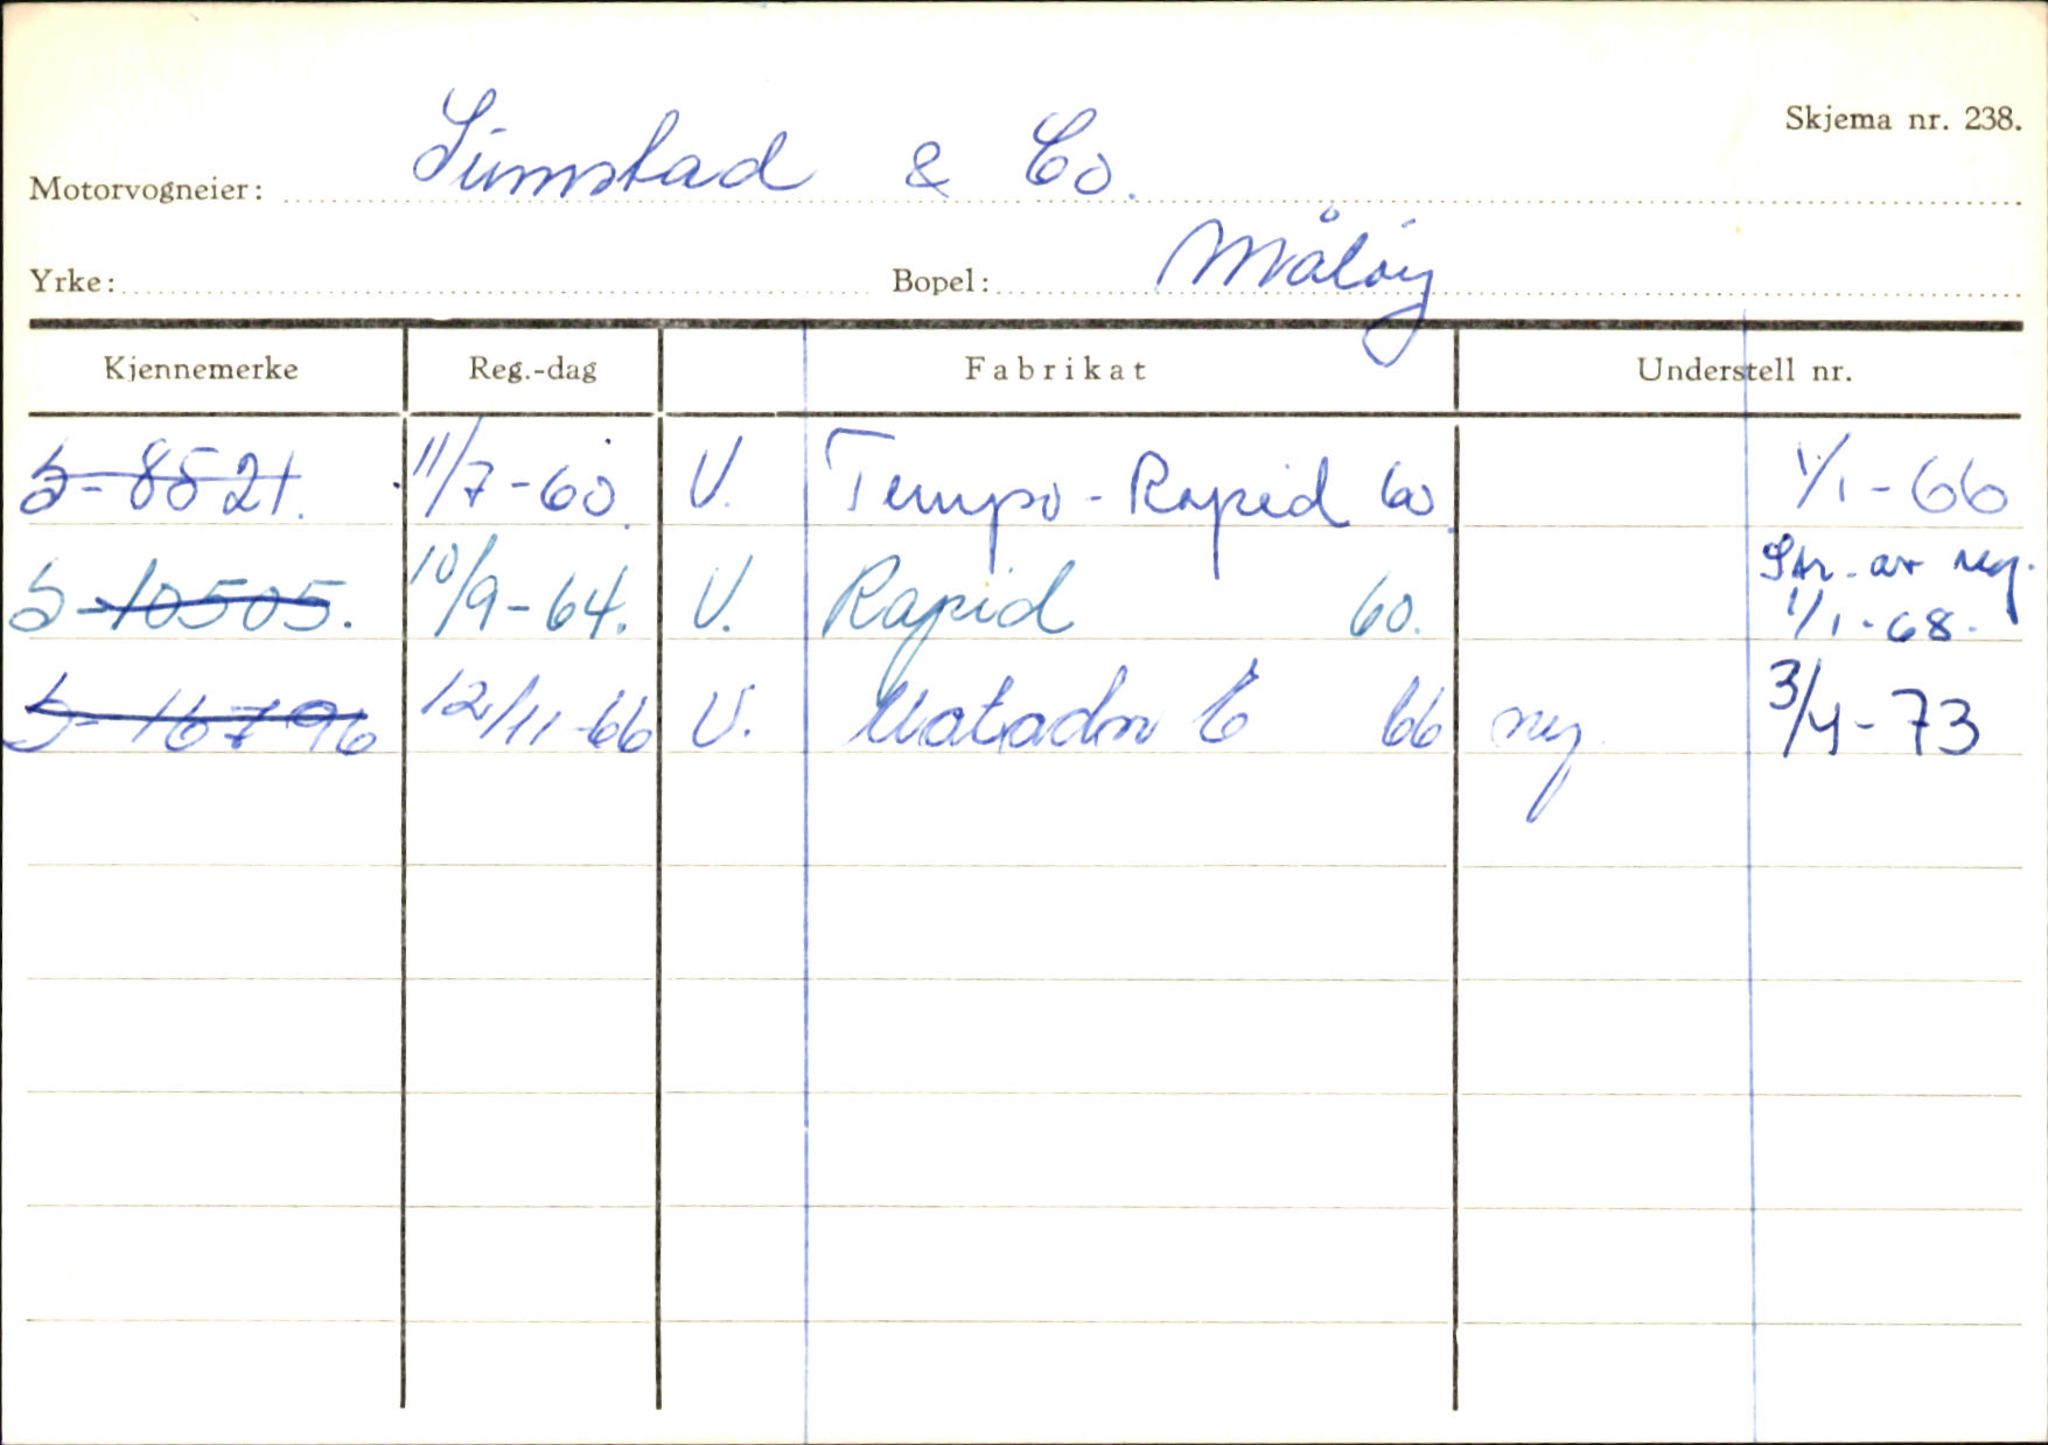 Skjema nr. 238.
Motorvogneier: Sümstad & Co.
Yrke: Bopel: Måløy
Kjennemerke Reg.-dag Fabrikat Understell nr.
S-8521. 11/7-60. V. Tempo-Rapid 60. 1/1-66
S-10505. 10/9-64. V. Rapid 60. Str. av reg. 1/1-68.
S-16796 12/11-66 V. Matador E 66 ny 3/4-73